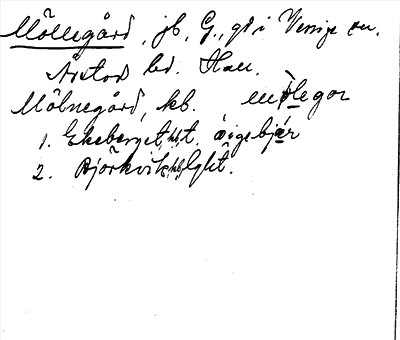 Möllegård, jb, G., gd i Vessige sn.
Årstad hd. Hall.
Mölnegård, kb. mölegor
1. Ekeberget, hb, t. öigebjær
2. Björkvik, hb, lght.